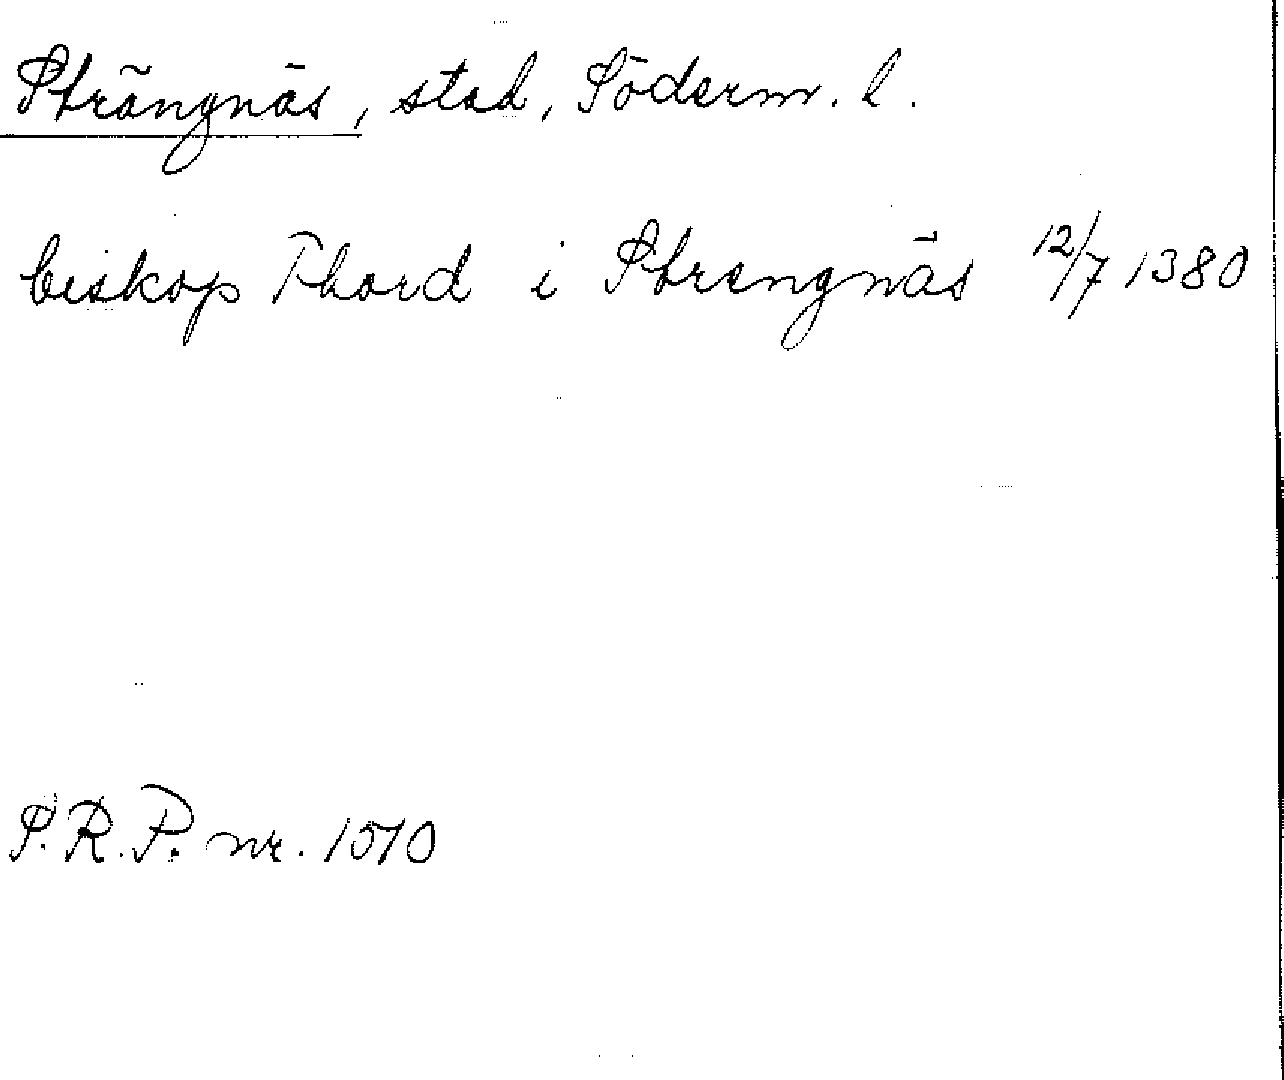 Strängnäs, stad, Söderm. l.
biskop Thord i Strengnäs 12/7 1380
S.R.P. nr. 1570